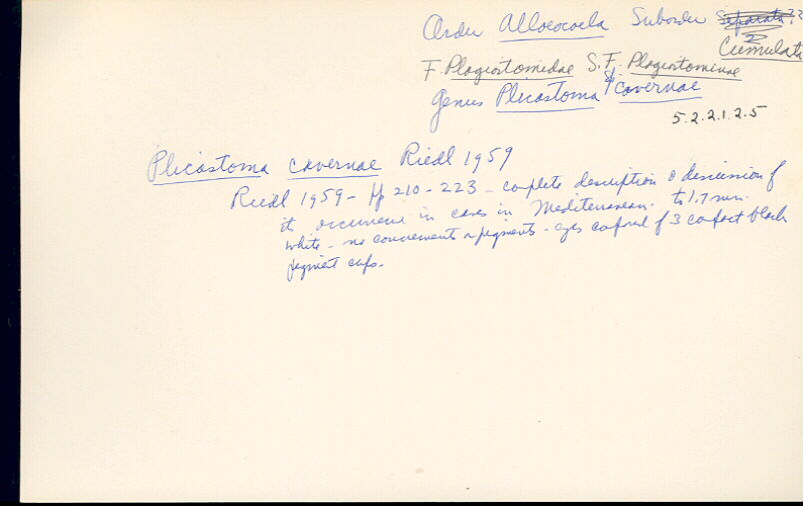 Order Alloeocoela Suborder Separata ??
2
Cumulata
F Plagiostomidae S.F. Plagiostominae
Genus Plicastoma sp cavernae
5.2.2.1.2.5
Plicastoma cavernae Riedl 1959
Riedl 1959 - pp 210-223 - complete description & discussion of
it occurence in caves in Mediterranean. to 1.7 mm.
white - no concrements or pigments - eyes composed of 3 compact black
pigment cups.